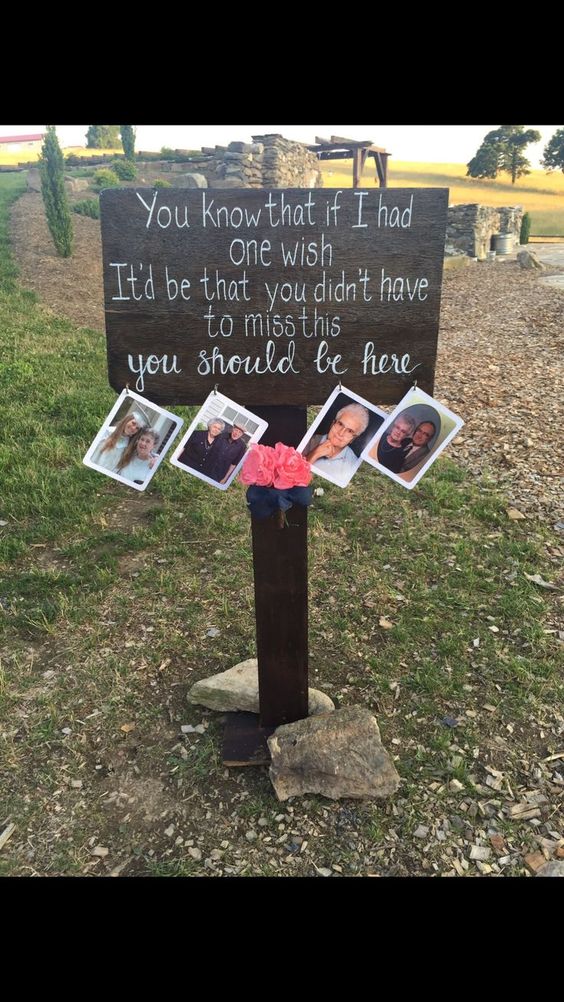 You know that if I had
one wish
It'd be that you didn't have
to miss this
you should be here